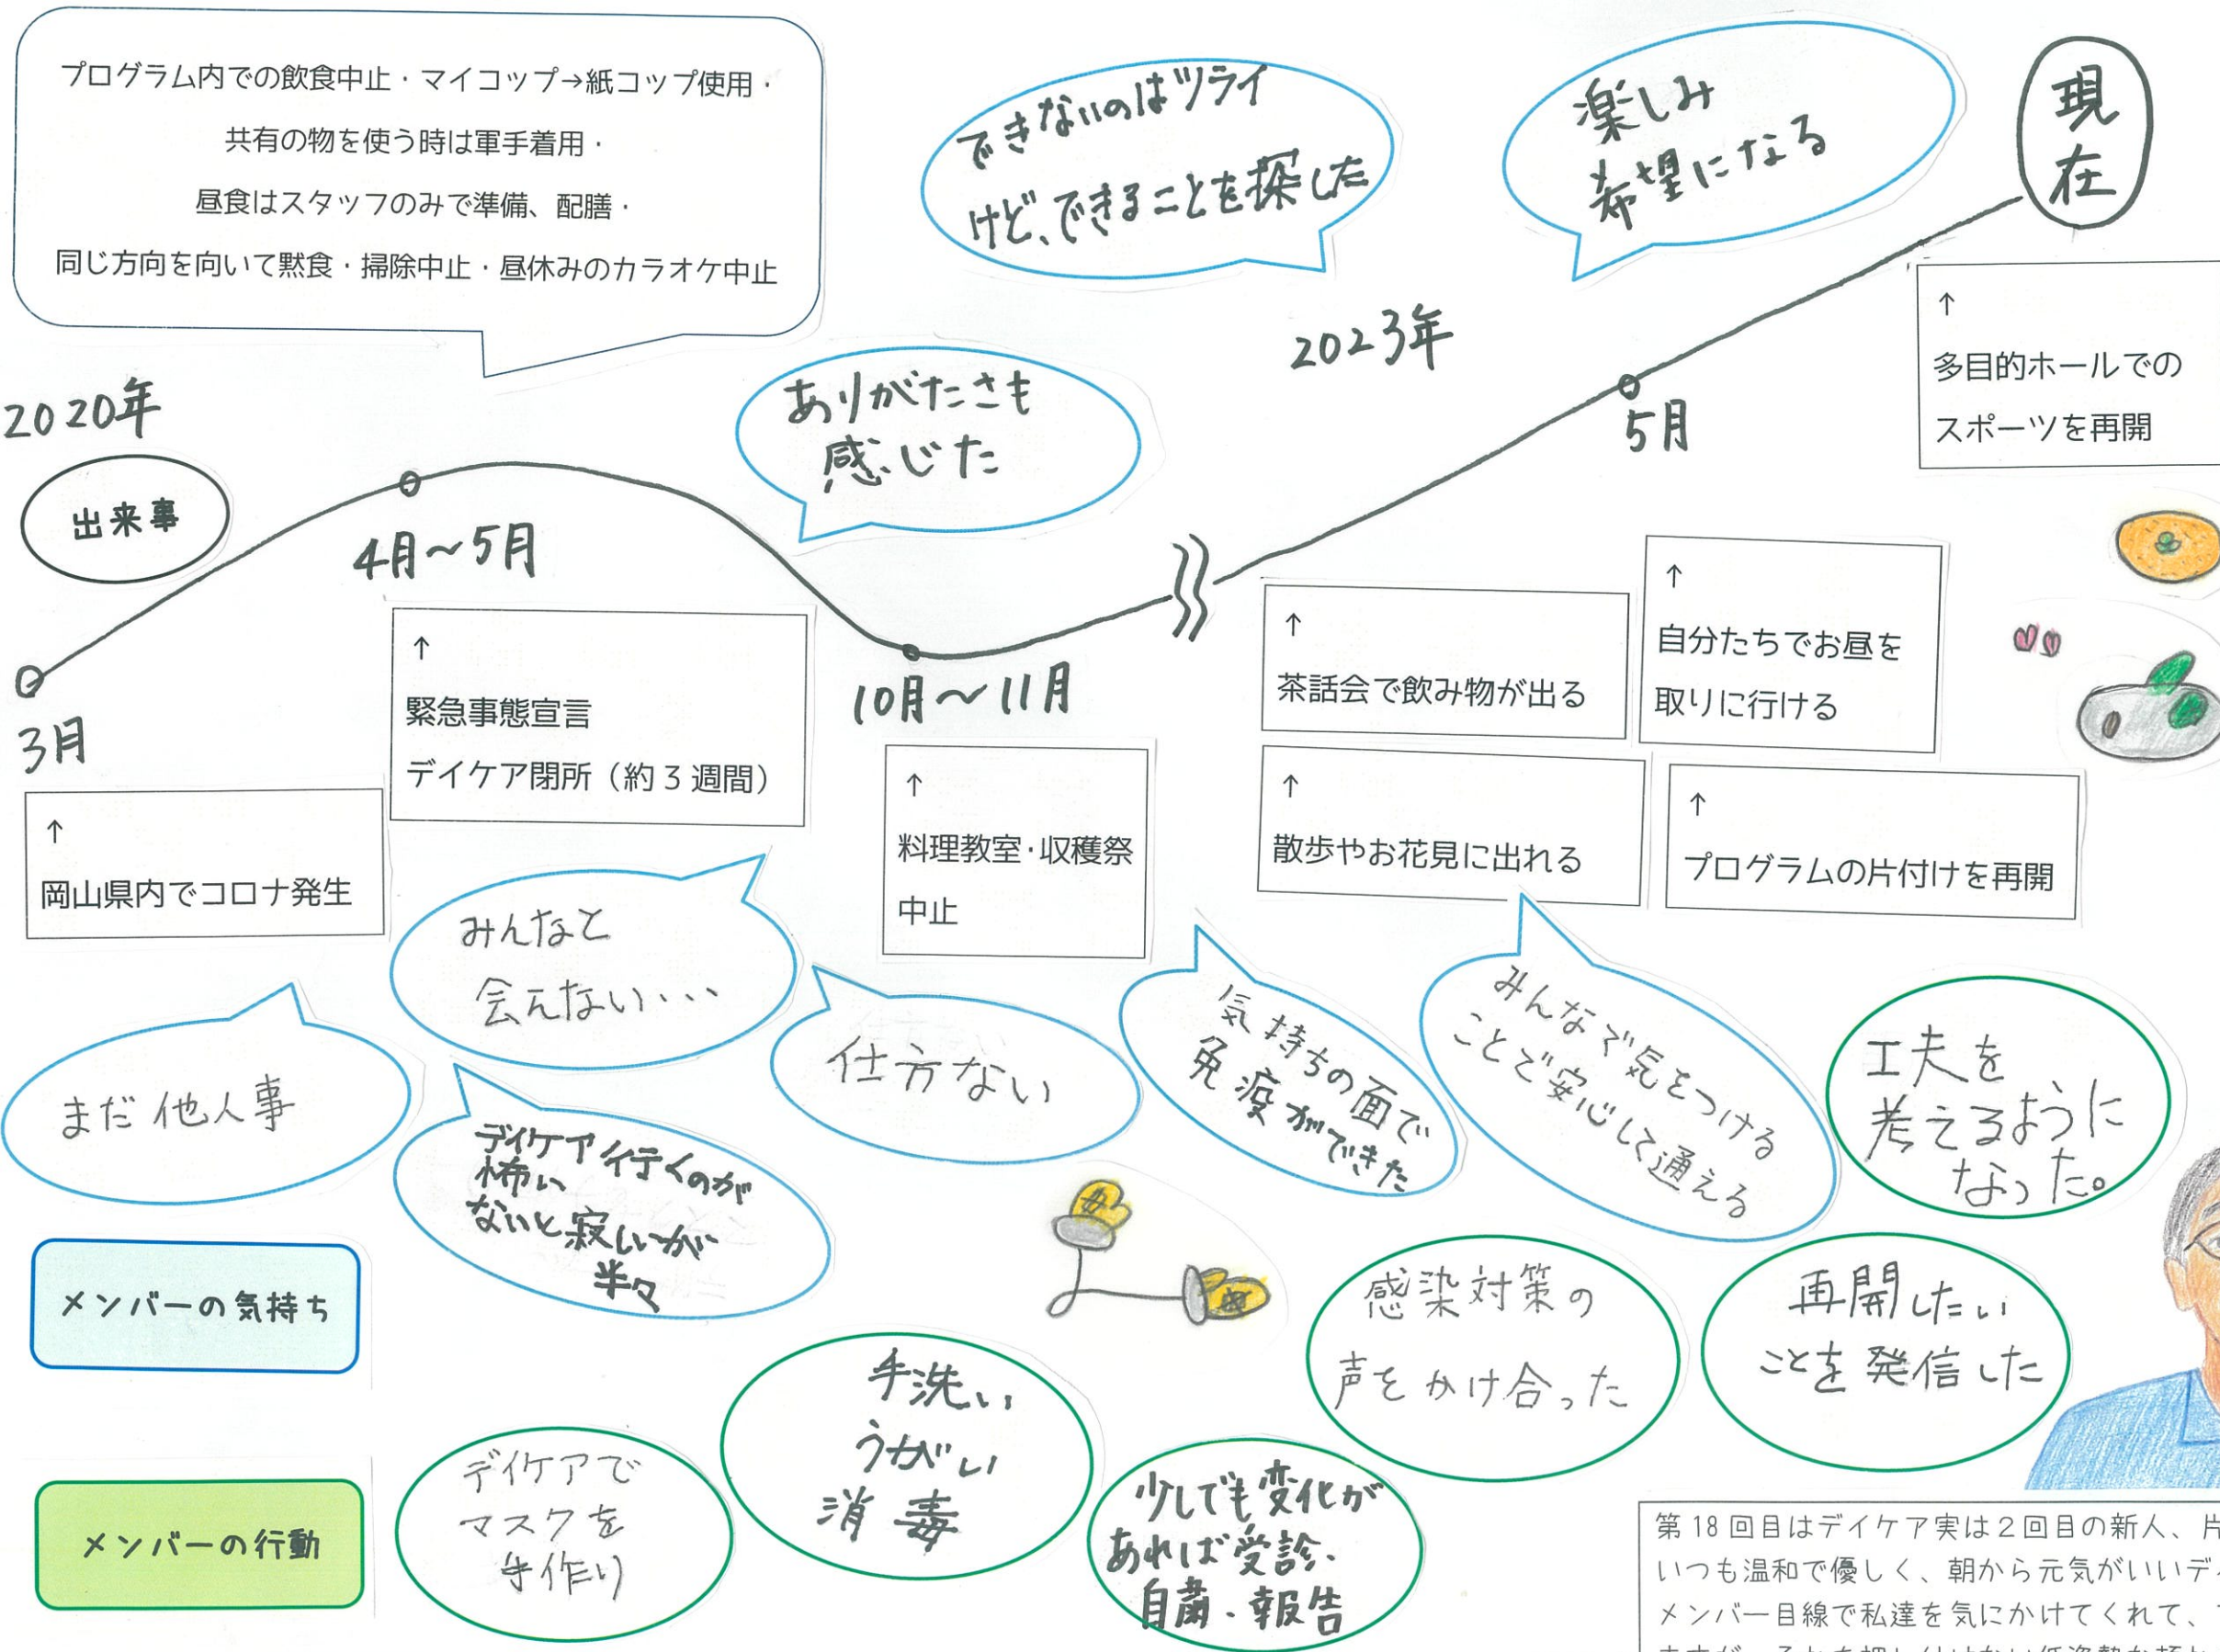 プログラム内での飲食中止・マイコップ→紙コップ使用・
共有の物を使う時は軍手着用・
昼食はスタッフのみで準備、配膳・
同じ方向を向いて黙食・掃除中止・昼休みのカラオケ中止
できないのはツライ
けど、できることを探した
楽しみ
希望になる
現在
2020年
出来事
ありがたさも
感じた
2023年
5月
↑
多目的ホールでの
スポーツを再開
3月
↑
岡山県内でコロナ発生
4月～5月
↑
緊急事態宣言
デイケア閉所（約3週間）
10月～11月
↑
料理教室・収穫祭
中止
↑
茶話会で飲み物が出る
↑
自分たちでお昼を
取りに行ける
↑
散歩やお花見に出れる
↑
プログラムの片付けを再開
まだ他人事
みんなと
会えない・・・
デイケア行くのが
怖い
ないと寂しいが
半々
仕方ない
気持ちの面で
免疫ができた
みんなで気をつける
ことで安心して通える
工夫を
考えるように
なった。
メンバーの気持ち
メンバーの行動
デイケアで
マスクを
手作り
手洗い
うがい
消毒
少しでも変化が
あれば受診、
自粛・報告
感染対策の
声をかけ合った
再開したい
ことを発信した
第18回目はデイケア実は2回目の新人、片
いつも温和で優しく、朝から元気がいいデイ
メンバー目線で私達を気にかけてくれて、